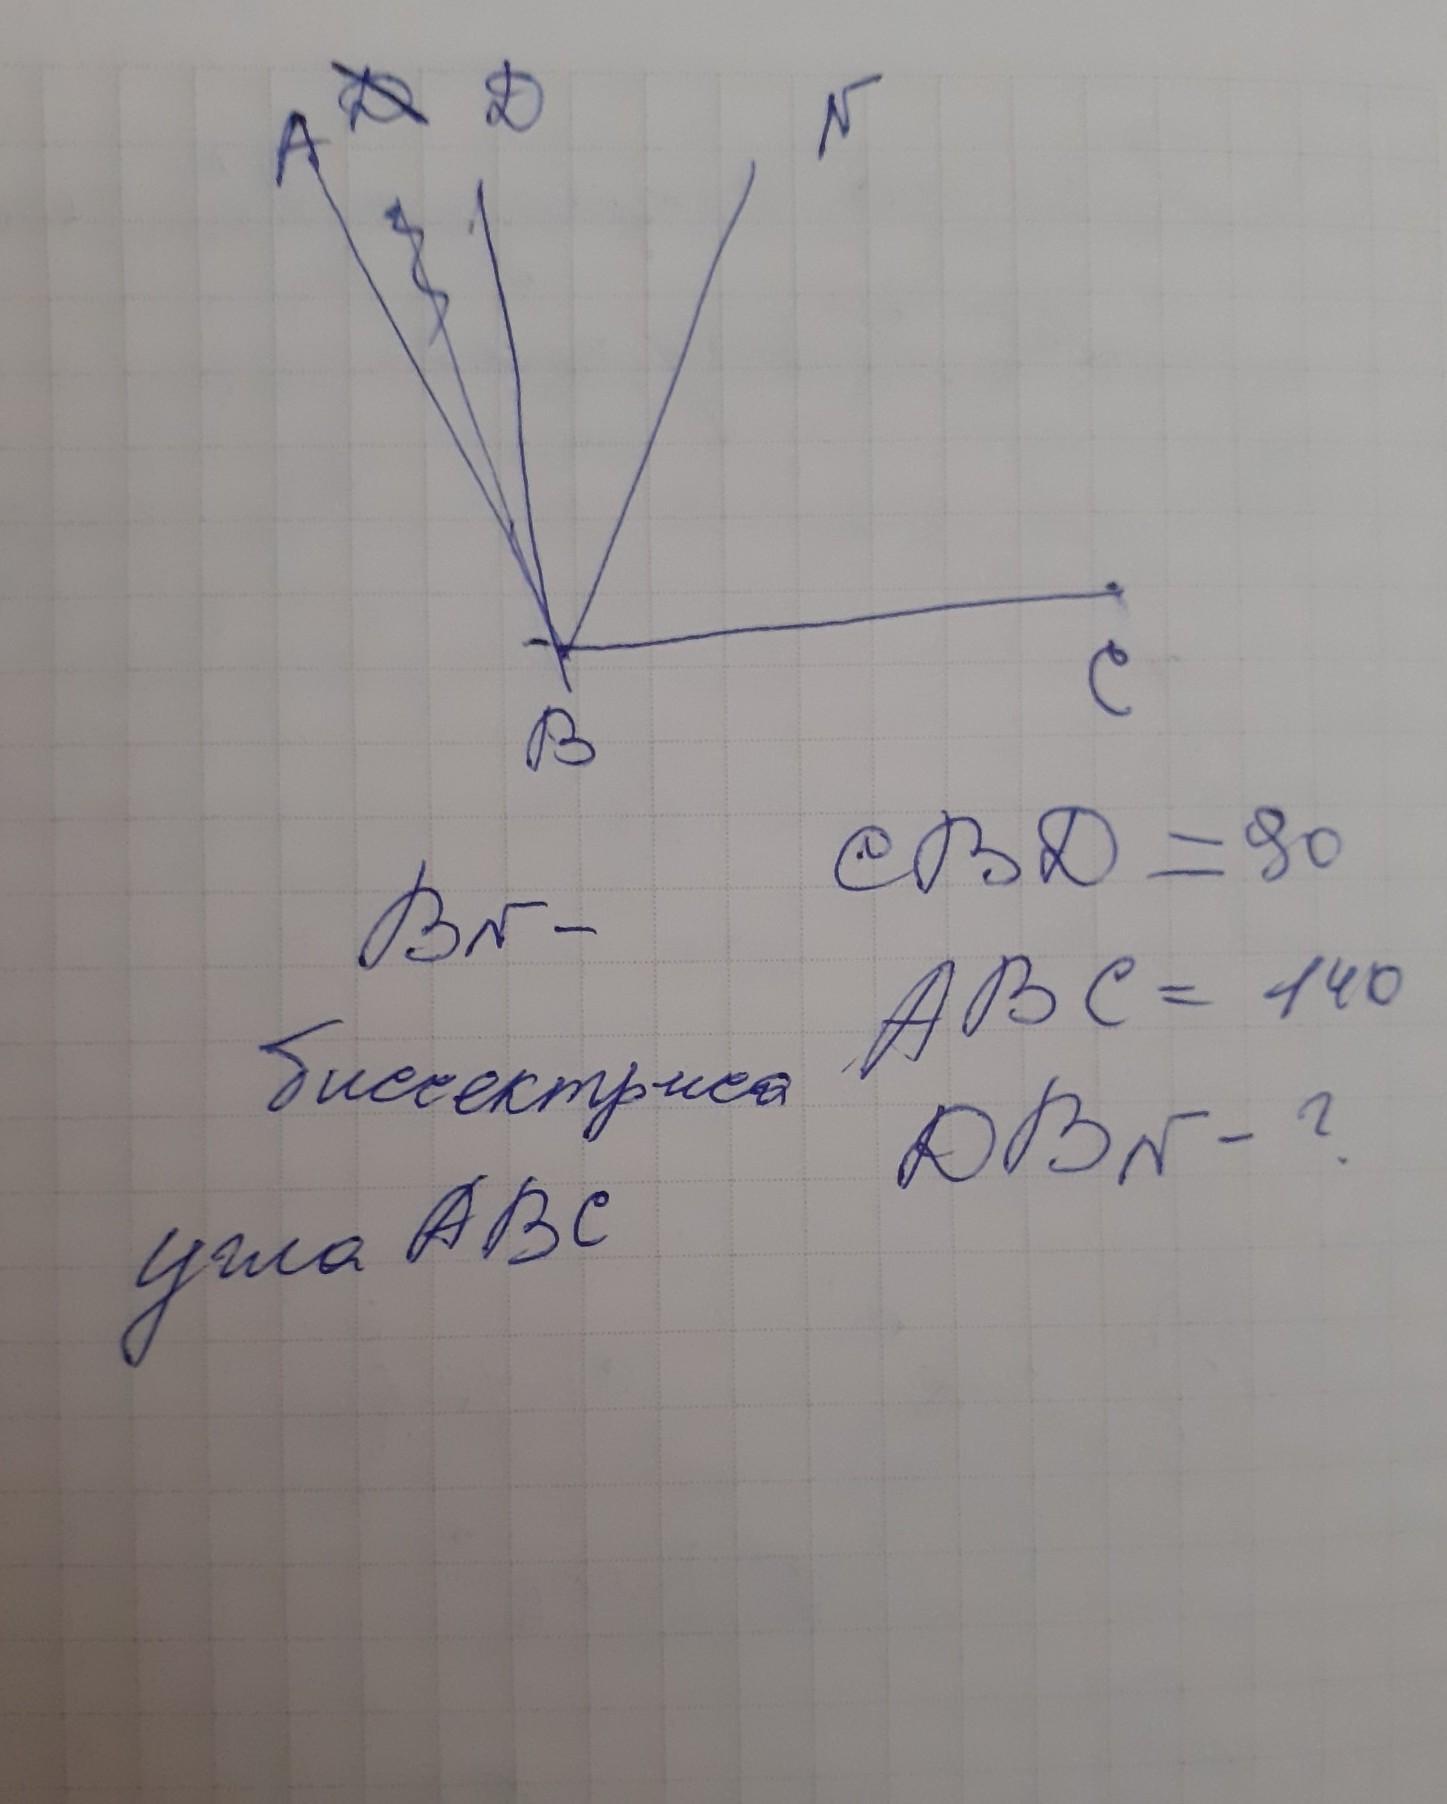 A D D N
B
C
BN -
биссектриса
угла ABC
CBD = 90
ABC = 140
DBN - ?